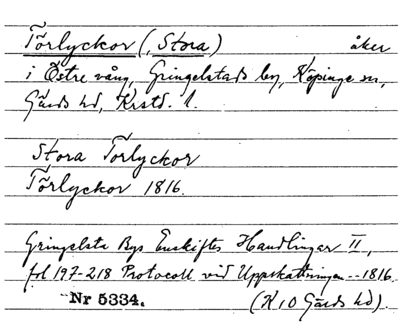 Törlyckor (, Stora) åker
i Östre vång, Gringelstads by, Köpinge sn,
Gärds hd, Krstd. l.
Stora Törlyckor
Törlyckor 1816.
Gringelsta Bys Enskiftes Handlingar II,
fol 197-218 Protocoll vid Uppskattningen -- 1816.
Nr 5334. (K 10 Gärds hd).